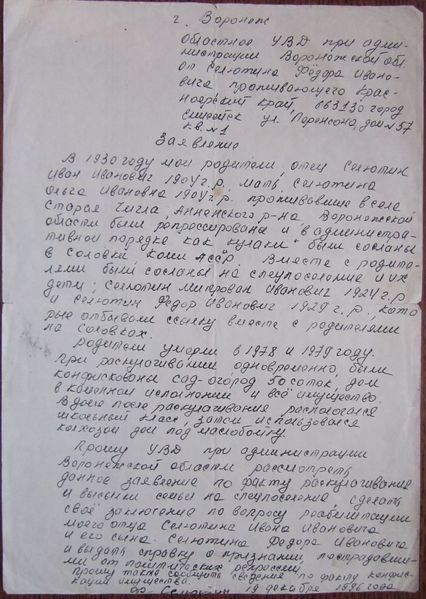 г. Воронеж
Областное УВД при адми-
нистрации Воронежской обл.
от Селютина Фёдора Ивано-
вича, проживающего Крас-
ноярский край, 663130 город
Енисейск ул. Перенсона, дом № 57
кв. № 1
Заявление
В 1930 году мои родители, отец Селютин
Иван Иванович 1904 г.р., мать, Селютина
Ольга Ивановна 1904 г.р. проживавшие в селе
Старая Чигла, Анненского р-на Воронежской
области были репрессированы и в администра-
тивном порядке как кулаки были сосланы
в Соловки, Коми АССР. Вместе с родите-
лями были сосланы на спецпоселение и их
дети; Селютин Митрофан Иванович 1924 г.р
и Селютин Федор Иванович 1929 г.р., кото
рые отбывали ссылку вместе с родителями
на Соловках.
Родители умерли в 1978 и 1979 году.
При раскулачивании одновременно были
конфискованы сад-огород 50 соток, дом
в каменном исполнении и всё имущество.
В доме после раскулачивания располагался
школьный класс, затем использовался
колхозом дом под маслобойку.
Прошу УВД при администрации
Воронежской области рассмотреть
данное заявление по факту раскулачивания
и высылки семьи на спецпоселение сделать
своё заключение по вопросу реабилитации
моего отца Селютина Ивана Ивановича
и его сына Селютина Федора Ивановича
и выдать справку о признании пострадавши-
ми от политических репрессий.
Прошу также сообщить сведения по факту конфис-
кации имущества.
Селютин 19 декабря 1996 года